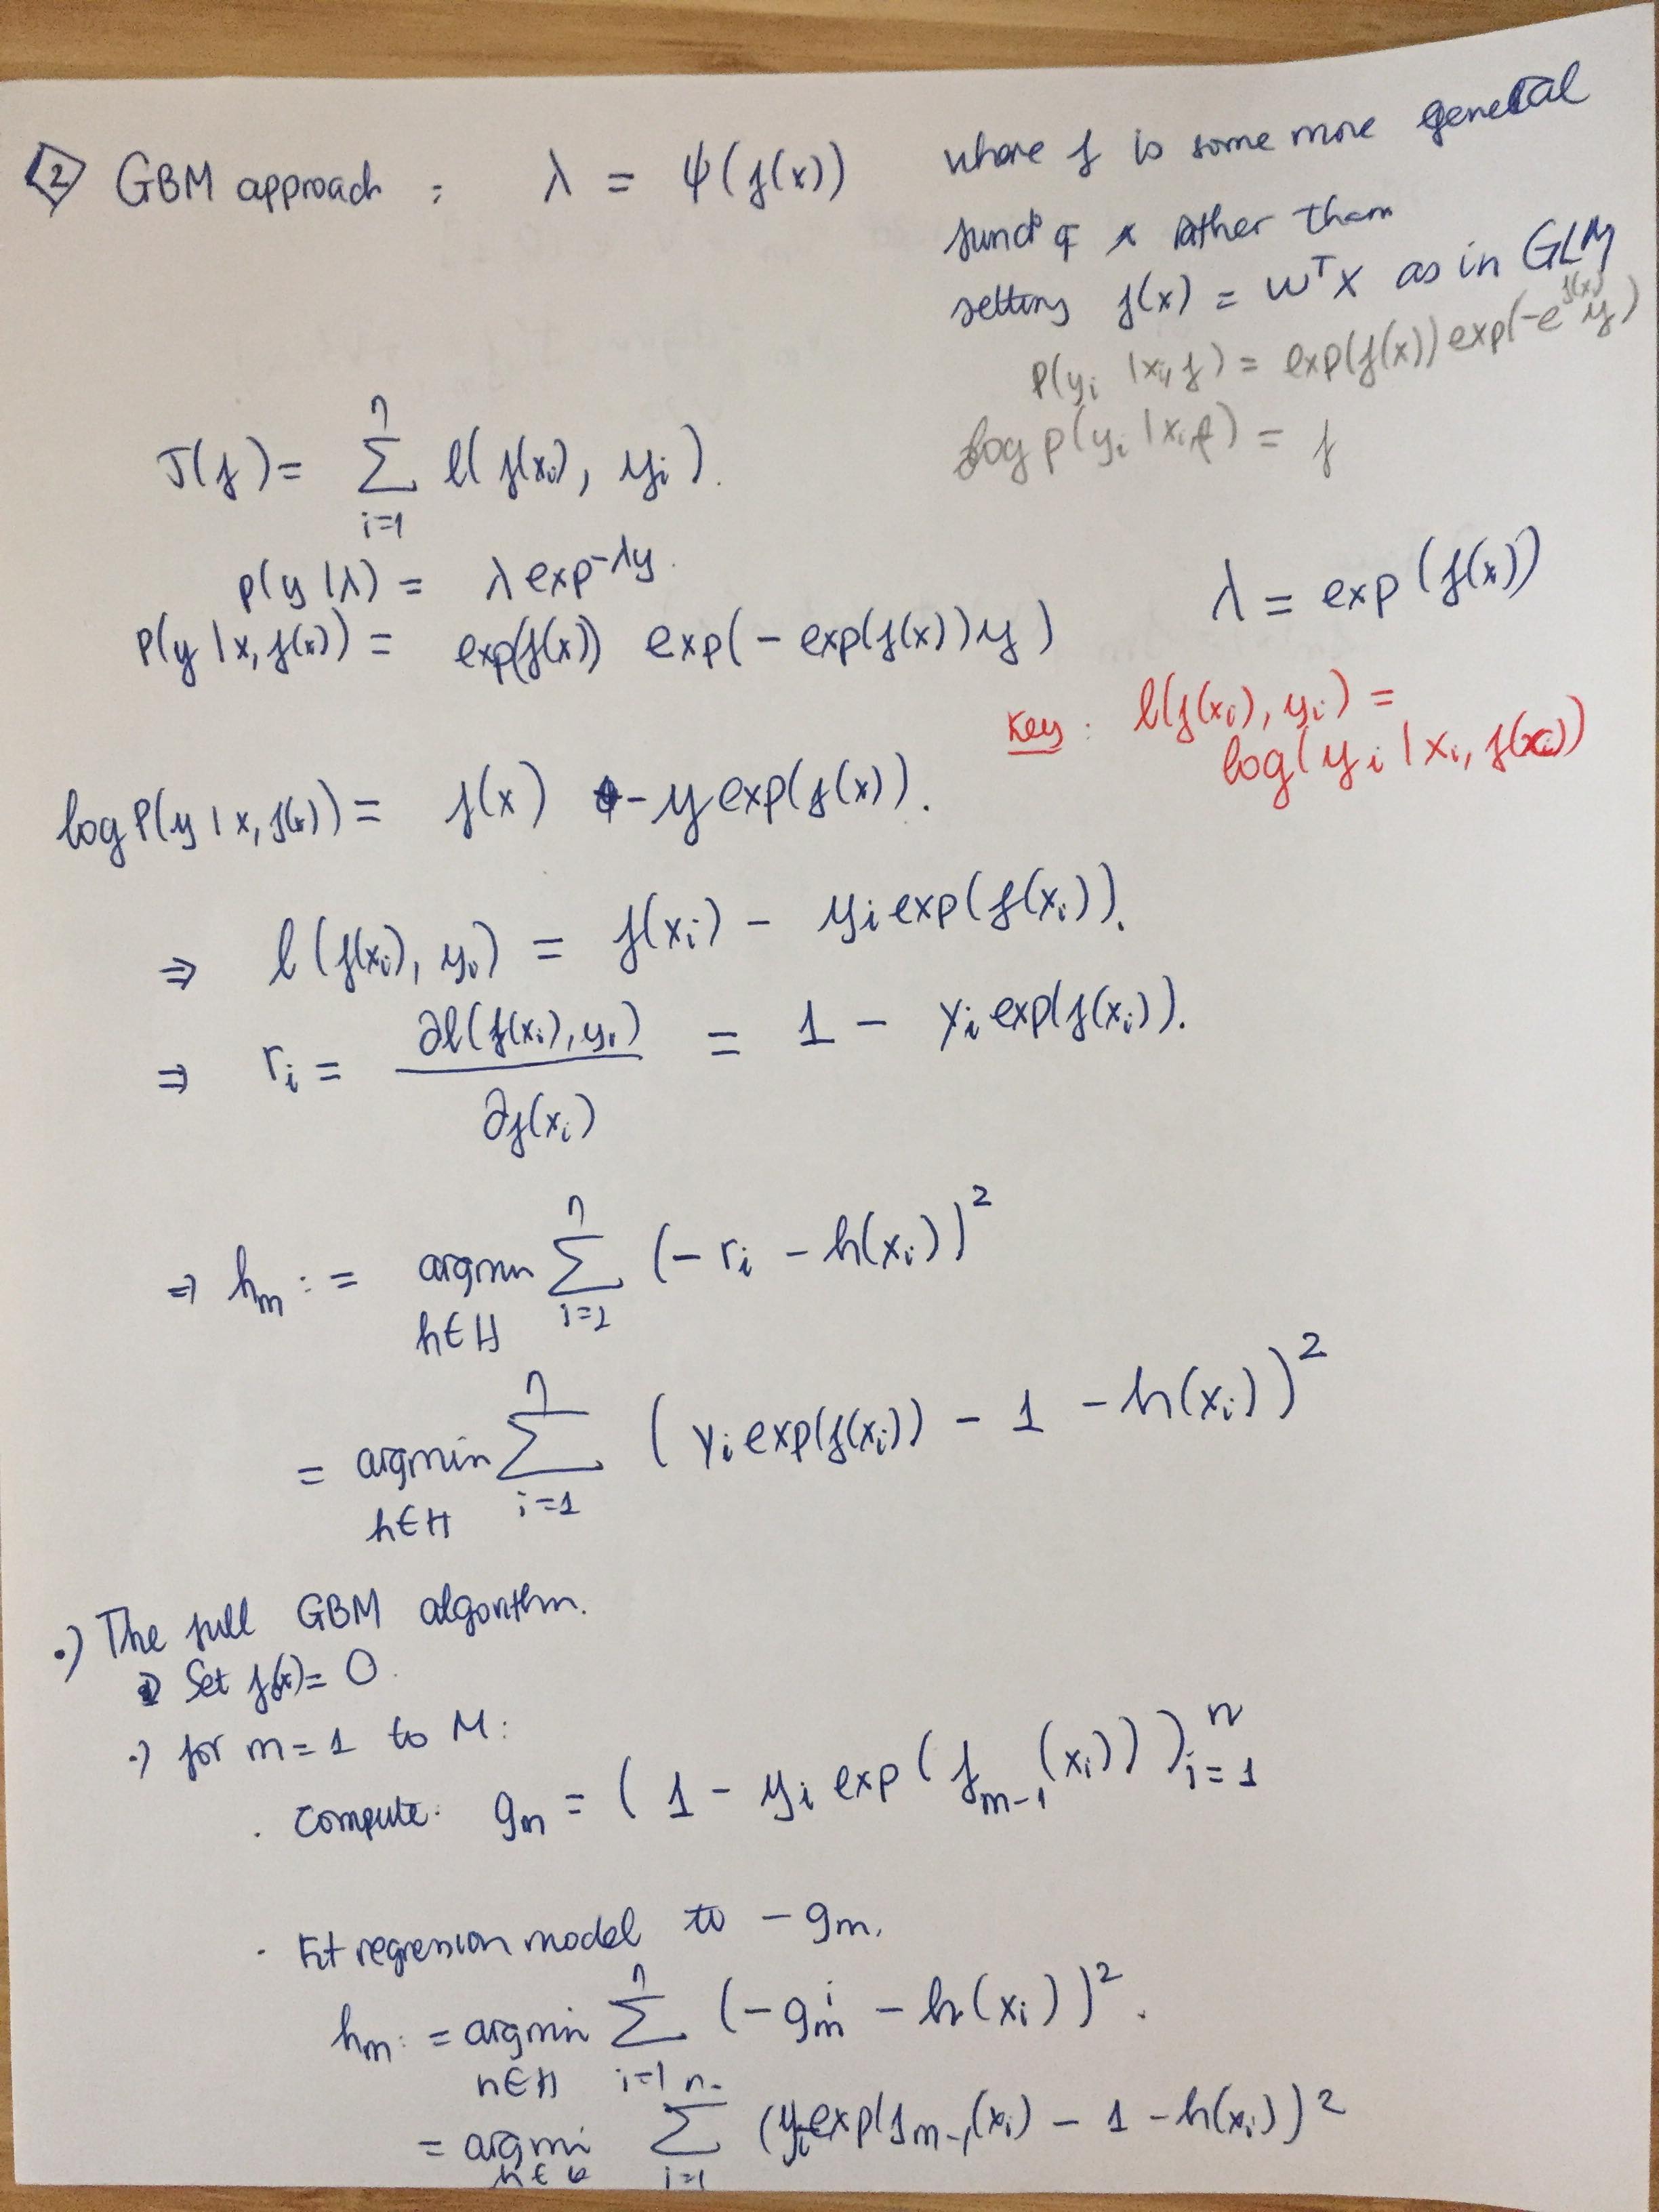 2 GBM approach : λ = ψ(f(x)) where f is some more general
funct° of x rather than
setting f(x) = wᵀx as in GLM
P(yᵢ | xᵢ, f) = exp(f(x)) exp(-e^f(x) y)
log p(yᵢ | xᵢ, f) = f
J(f) = Σ_{i=1}^{n} l(f(xᵢ), yᵢ).
p(y | λ) = λ exp^{-λy}.
λ = exp(f(x))
P(y | x, f(x)) = exp(f(x)) exp(- exp(f(x)) y)
Key : l(f(xᵢ), yᵢ) =
log(yᵢ | xᵢ, f(xᵢ))
log P(y | x, f(x)) = f(x) - y exp(f(x)).
⇒ l(f(xᵢ), yᵢ) = f(xᵢ) - yᵢ exp(f(xᵢ)).
⇒ rᵢ = ∂l(f(xᵢ), yᵢ) / ∂f(xᵢ) = 1 - yᵢ exp(f(xᵢ)).
⇒ hₘ := argmin_{h∈H} Σ_{i=1}^{n} (- rᵢ - h(xᵢ))²
= argmin_{h∈H} Σ_{i=1}^{n} (yᵢ exp(f(xᵢ)) - 1 - h(xᵢ))²
•) The full GBM algorithm.
Set f(x) = 0.
•) for m = 1 to M :
· compute: gₘ = (1 - yᵢ exp(f_{m-1}(xᵢ)))_{i=1}^{n}
· Fit regression model to - gₘ.
hₘ := argmin_{h∈H} Σ_{i=1}^{n} (- gₘⁱ - h(xᵢ))².
= argmi_{h∈H} Σ_{i=1}^{n} (yᵢ exp(f_{m-1}(xᵢ) - 1 - h(xᵢ))²